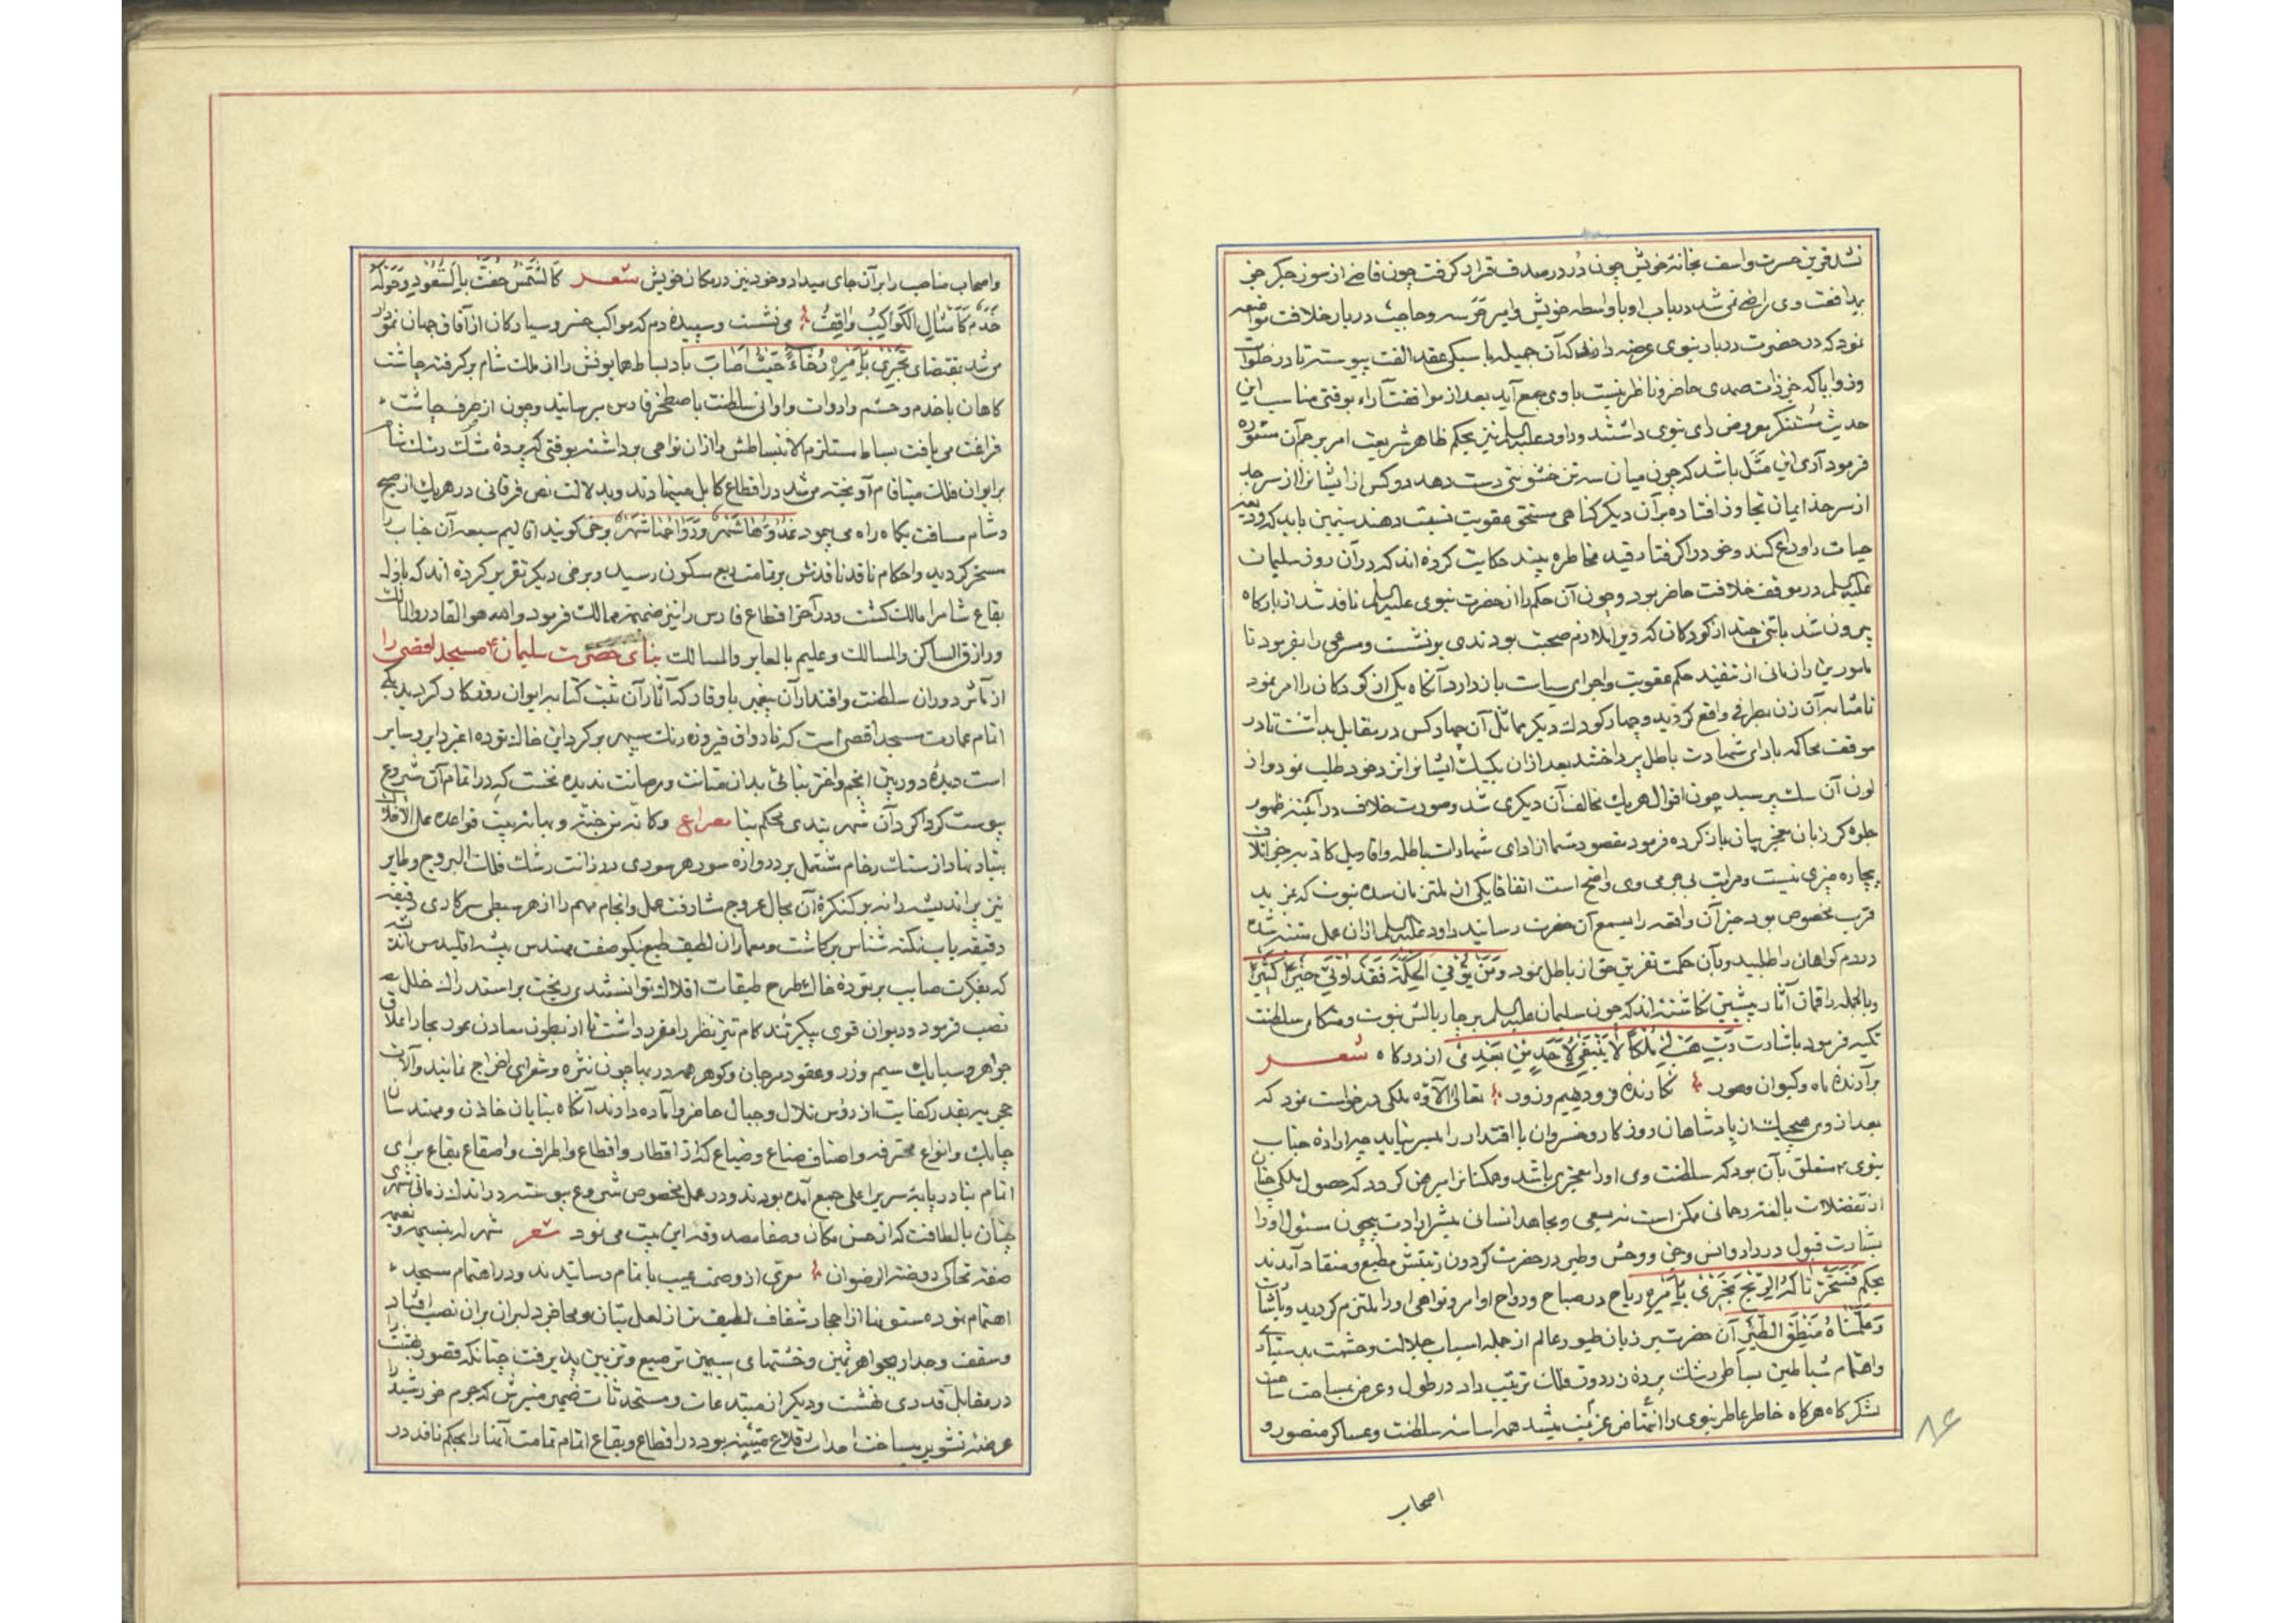 شد قرین حسرت واسف بخانه خویش چون در در صدف قرار گرفت چون قاضی از سوز جکر جز
بدافعت وی راضی نمی شد در باب او با واسطه خویش وامیر حرسه وحاجب دربار خلافت مواضعه
نمود که در حضرت دربار نبوی عرضه دارند که آن جمیله با سکی عقد الفت پیوسته تا در خلوات
وزوایا که جز ذات صمدی حاضر وناظر نیست با وی جمع آید بعد از موافقت آراء بوقتی مناسب این
حدیث مستنکر معروض رای نبوی داشتند وداود علیه السلم نیز بحکم ظاهر شریعت امر برجم آن مستوره
فرمود آری این مثل باشد که چون میان سه تن خشونتی دست دهد دو کس از ایشانرا از سر حد
از سر حد ایمان تجاوز افتاده بر آن دیکر کناهی مستحق عقوبت نسبت دهند سیمین باید که ودیعه
حیات را وداع کند وخود را کرفتار قید مخاطره بیند حکایت کرده اند که در آن روز سلیمان
علیه السلم در موقف خلافت حاضر بود وچون آن حکم را از حضرت نبوی علیه السلم نافد شد از بارکاه
بیرون شد با تنی چند از کودکان که ویرا ملازم صحبت بودندی بر نشست ومسرعی را بفرمود تا
مامورین را زمانی از تنفیذ حکم عقوبت واجرای سیاست باز دارد آنکاه یکی از کودکان را امر نمود
تا مشابه آن زن بطرفی واقع کردید وچهار کودک دیکر مماثل آن چهار کس در مقابل بداشت تا در
موقف محاکمه بادای شهادت باطل پرداختند بعد ازان یکیک ایشانرا نزد خود طلب نمود واز
لون آن سک پرسید چون اقوال هریک مخالف آن دیکری شد وصورت خلاف در آئینه ظهور
جلوه کر زبان معجز بیان باز کرده فرمود مقصود شما از ادای شهادات باطله واقاویل کاذبه جز اتلاف
بیچاره چیزی نیست ومراتب بی جرمی وی واضح است اتفاقا یکی از ملتزمان سده نبوت که بمزید
قرب مخصوص بود خبر آن واقعه را بسمع آن حضرت رسانید داود علیه السلم ازان عمل متنبه شده
دردم کواهان را طلبید وبآن حکمت تفریق حق از باطل نمود وَمَنْ یُؤْتَ الْحِکْمَةَ فَقَدْ اُوتِیَ خَیْراً کَثیراً
وبالجمله راقمان آثار پیشین نکاشته اند که چون سلیمان علیه السلم بر چار بالش نبوت ومتکای سلطنت
تکیه فرمود باشارت رَبِّ هَبْ لِی مُلْکاً لا یَنْبَغِی لِاَحَدٍ مِنْ بَعْدِی از درکاه شعر
برآرنده ماه وکیوان وهور نکارنده فر ودیهیم وزور تعالی آلاؤه ملکی درخواست نمود که
بعد از وی هیچیک از پادشاهان روزکار وخسروان با اقتدار را میسر نیاید چه اراده جناب
نبوی متعلق بآن بود که سلطنت وی اورا معجزی باشد وهمکنانرا مبرهن کردد که حصول ملکی چنان
از تفضلات بالغه رحمانی ممکن است نه بسعی ومجاهد انسانی مبشر ارادت بیچون مسئول اورا
بشارت قبول در داد وانس وجن ووحش وطیر در حضرت کردون زینتش مطیع ومنقاد آمدند
بحکم فَسَخَّرْنا لَهُ الرِّیحَ تَجْرِی بِاَمْرِهِ ریاح در صباح ورواح اوامر ونواهی اورا ملتزم کردید وباشارت
وَعُلِّمْنا مَنْطِقَ الطَّیْرِ آن حضرت بر زبان طیور عالم از جمله اسباب جلالت وحشمت بدستیاری
واهتمام شیاطین بساطی رشک پرده زردوز فلک ترتیب داد در طول وعرض بمساحت ساحت
لشکرکاه هرکاه خاطر عاطر نبوی را انتهاض عزیمت میشد همه اساسه سلطنت وعساکر منصور و
اصحاب
۸۶
واصحاب مناصب را بر آن جای میداد وخود نیز در مکان خویش شعر کَالشَّمْسِ حُفَّتْ بِالسُّعُودِ وَحَوْلَهُ
خَدَمٌ کَاَمْثالِ الْکَواکِبِ واقِفٌ می نشست وسپیده دم که مواکب خسرو سیارکان از آفاق جهان نمودار
می شد بمقتضای تَجْرِی بِاَمْرِهِ رُخاءً حَیْثُ اَصابَ باد بساط همایونش را از ملک شام بر کرفته چاشت
کاهان با خدم وحشم وادوات واوانی سلطنت باصطخر فارس میرسانید وچون از صرف چاشت
فراغت می یافت بساط مستلزم الانبساطش را ازان نواحی برداشته بوقتی که پرده مشک رنک شام
بر ایوان فلک مینافام آویخته می شد در اقطاع کابل مینهادند وبدلالت نص فرقانی در هریک از صبح
وشام مسافت یکماه راه می پیمود غُدُوُّها شَهْرٌ وَرَواحُها شَهْرٌ وبرخی کویند اقالیم سبعه آن جناب را
مسخر کردید واحکام ناقد نافذش بر تمامت ربع مسکون رسید وبرخی دیکر تقریر کرده اند که باول
بقاع شام را مالک کشت ودر آخر اقطاع فارس را نیز ضمیمه ممالک فرمود والله هو القادر والمالک
ورازق الساکن والمسالک وعلیم بالمعابر والمسالک بنای حضرت سلیمان ع مسجد اقصی را
از مآثر دوران سلطنت واقتدار آن پیغمبر باوقار که آثار آن ثبت کتابه ایوان روزکار کردید یکی
اتمام عمارت مسجد اقصی است که تا رواق فیروزه رنک سپهر بر کرد این خاک توده اغبر دایر وسایر
است دیده دوربین انجم واختر بنائی بدان متانت ورصانت ندیده نخست که در اتمام آن شروع
پیوست کرداکرد آن شهر بندی محکم بنا مصراع وکانه من جنة وبهائه بیت قواعده علی الافلاک
بنیاد نهاد از سنک رخام مشتمل بر دروازه سور هر سوری در رزانت رشک فلک البروج وطایر
تیز پر اندیشه را نه بر کنکره آن مجال عروج شارفت عمل وانجام مهم را از هر سبطی سرکاری
دقیقه یاب نکته شناس برکاشت ومعماران لطیف طبع نیکو صفت مهندس پیشه اقلیدس اندیشه
که بفکرت صایب بر توده خاک طرح طبقات افلاک توانستندی ریخت بر استدراک خلل
نصب فرمود ودیوان قوی پیکر تند کام تیز نظر را مقرر داشت تا از بطون معادن وبحار اعلاق
جواهر وسبایک سیم وزر وعقود مرجان وکوهر همه در بها چون نثره وشعرای اخراج نمایند وآلات
حجریه بقدر کفایت از رؤس تلال وجبال حاضر وآماده دارند آنکاه بنایان حاذق ومهندسان
چابک وانواع محترفه واصناف صناع وضیاع که از اقطار واقطاع واطراف واصقاع بقاع برای
اتمام بنا در پایه سریر اعلی جمع آمده بودند ودر عمل مخصوص شروع پیوسته در اندک زمانی شهری
چنان بالطافت که از حسن مکان وصفا مصدوقه این بیت می نمود شعر شهر له بنسیمه ونعیمه
صفة تحاکی روضة الرضوان معری از وصمت عیب باتمام رسانیدند ودر اهتمام مسجد
اهتمام نموده ستونها از احجار شفاف لطیف تر از لعل بتان ومحاضر دلبران بران نصب افتاد
وسقف وجدار بجواهر ثمین وخشتهای سیمین ترصیع وتزیین پذیرفت چنانکه قصور جنت را
در مقابل قدری نهشت ودیکر از مبتدعات ومستحدثات ضمیر منیرش که جرم خورشید را
عرضه تشویر میساخت احداث قلاع متینه بود در اقطاع وبقاع اتمام تمامت آنها را بحکم نافد در